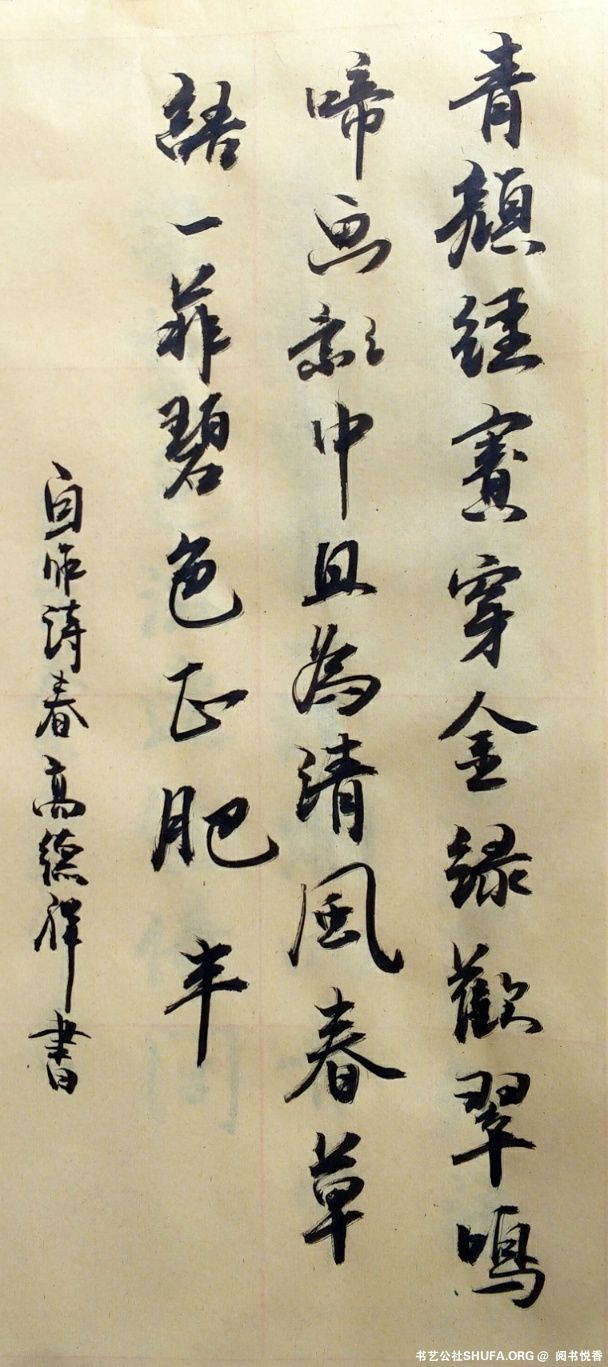 青經穿金緑歡翠鳴
啼画影中且為清風春草
語一菲碧色正肥丰
自作詩春高德祥書
书艺公社SHUFA.ORG @ 阅书悦香